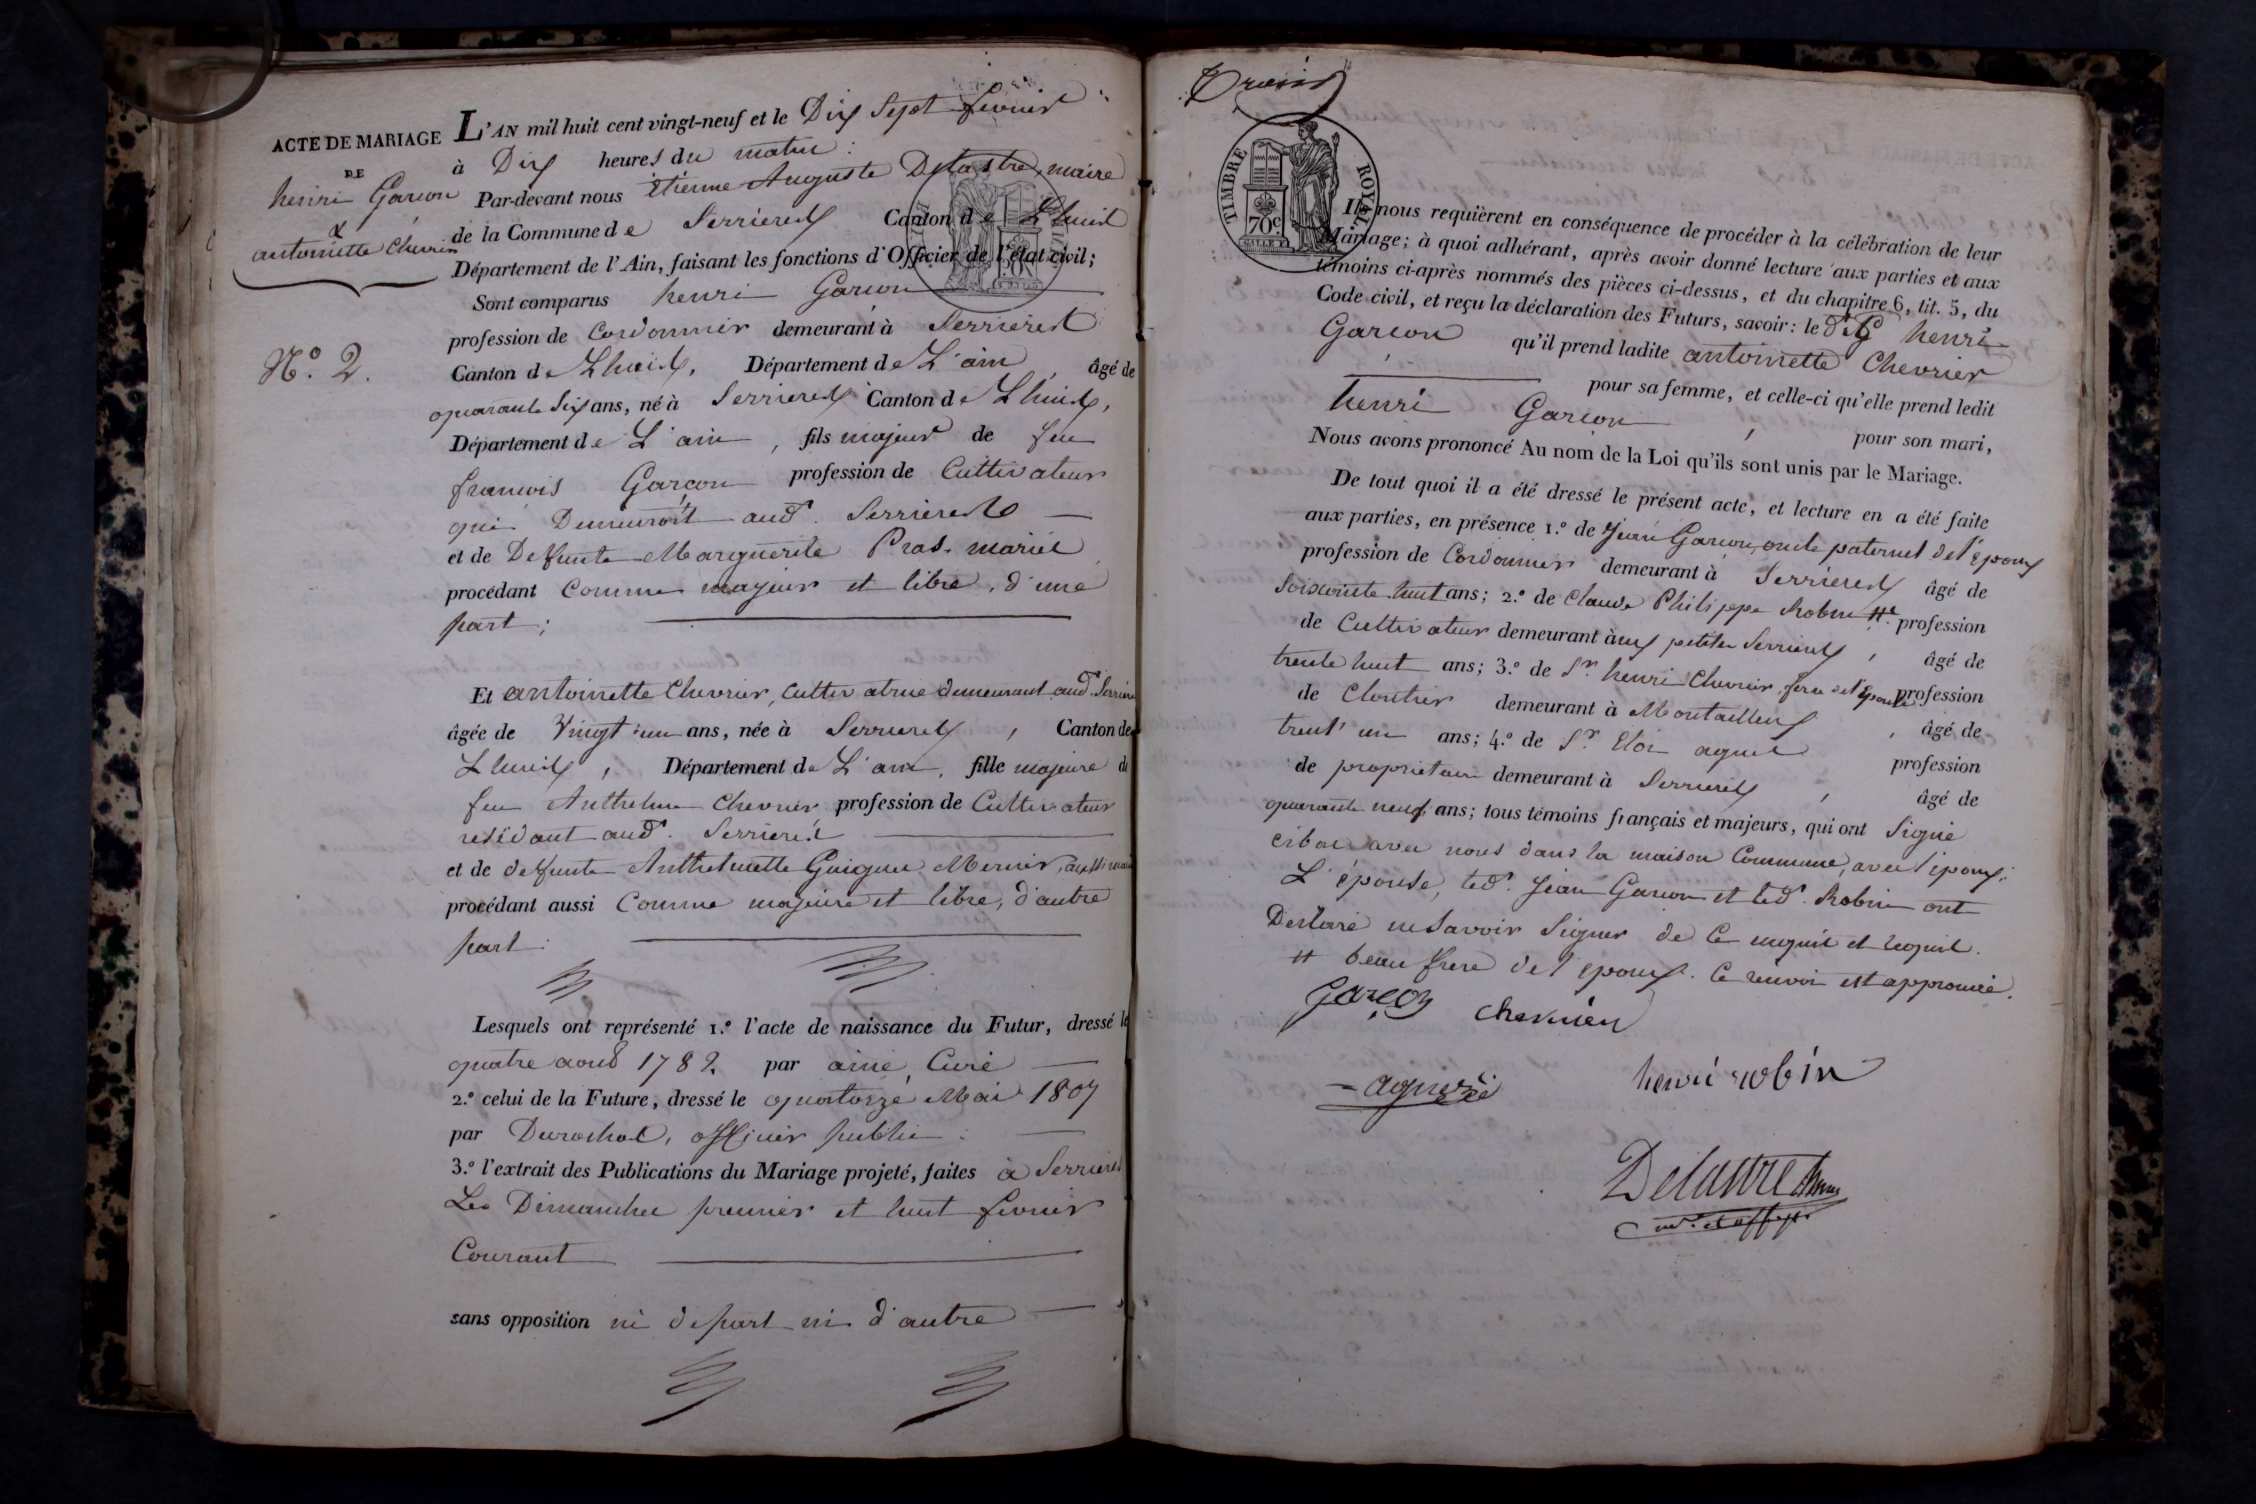 ACTE DE MARIAGE
DE
henri Garcon
&
antoinette Chevrier
N.º 2.
L'AN mil huit cent vingt-neuf et le Dix Sept fevrier
à Dix heures du matin :
Par-devant nous étienne Auguste Delastre, maire
de la Commune de Serrieres Canton de Lhuis
Département de l'Ain, faisant les fonctions d'Officier de l'état civil;
Sont comparus henri Garcon
profession de Cordonnier demeurant à Serrieres
Canton de Lhuis, Département de L'ain, âgé de
quarante Six ans, né à Serrieres Canton de Lhuis,
Département de L'ain, fils majeur de feu
francois Garçon profession de Cultivateur
qui Demeuroit aud. Serrieres
et de Defunte Marguerite Pras. mariés
procédant Comme majeur et libre, d'une
part;
Et antoinette Chevrier, cultivatrice demeurant aud. Serrieres
âgée de Vingt un ans, née à Serrieres, Canton de
Lhuis, Département de L'ain, fille majeure de
feu Anthelme Chevrier profession de Cultivateur
residant aud. Serrieres
et de defunte Anthelmette Guigue Mernier, aussi
procédant aussi Comme majeure et libre, d'autre
part :
Lesquels ont représenté 1.º l'acte de naissance du Futur, dressé le
quatre aout 1782. par aimé, Curé
2.º celui de la Future, dressé le quatorze Mai 1807
par Durochat, officier public :
3.º l'extrait des Publications du Mariage projeté, faites à Serrieres
Les Dimanches premier et huit fevrier
Courant
sans opposition ni de part ni d'autre
TIMBRE ROYAL
70c
Ils nous requièrent en conséquence de procéder à la célébration de leur
Mariage; à quoi adhérant, après avoir donné lecture aux parties et aux
témoins ci-après nommés des pièces ci-dessus, et du chapitre 6, tit. 5, du
Code civil, et reçu la déclaration des Futurs, savoir : le dit henri
Garcon qu'il prend ladite antoinette Chevrier
pour sa femme, et celle-ci qu'elle prend ledit
henri Garcon, pour son mari,
Nous avons prononcé Au nom de la Loi qu'ils sont unis par le Mariage.
De tout quoi il a été dressé le présent acte, et lecture en a été faite
aux parties, en présence 1.º de Jean Garcon, oncle paternel de l'époux
profession de Cordonnier demeurant à Serrieres âgé de
Soixante huit ans; 2.º de Claude Philippe Robin # profession
de Cultivateur demeurant aux petites Serrieres, âgé de
trente huit ans; 3.º de Sr. henri Chevrier, frere de l'épouse profession
de Cloutier demeurant à Montallieu, âgé de
trent' un ans; 4.º de Sr. Eloi agniel profession
de proprietaire demeurant à Serrieres, âgé de
quarante neuf ans; tous témoins français et majeurs, qui ont Signé
cibas avec nous dans la maison Commune, avec l'époux;
L'épouse, led. Jean Garcon et led. Robin ont
Declaré ne Savoir Signer de Ce enquis et requis.
# beau frere de l'epoux. Ce renvoi est approuvé.
Garcon
Chevrier
henri robin
Delastre